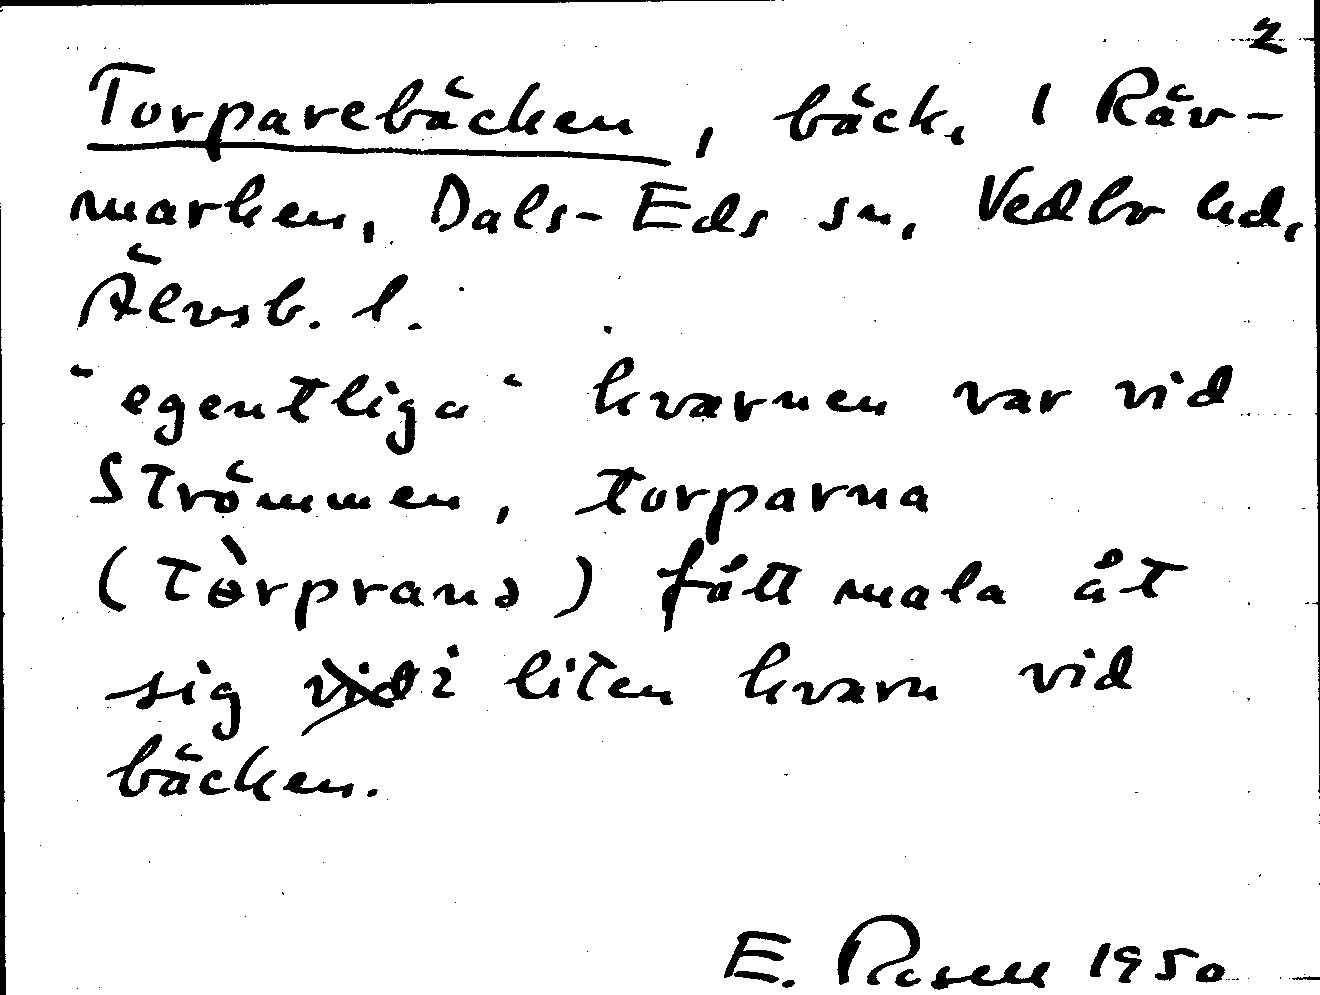 2
Torparebäcken, bäck, 1 Räv-
marken, Dals-Eds sn, Vedbo hd,
Älvsb. l.
"egentliga" kvarnen var vid
Strömmen, torparna
(Tòrpranə) fått mala åt
sig i liten kvarn vid
bäcken.
E. Rosell 1950